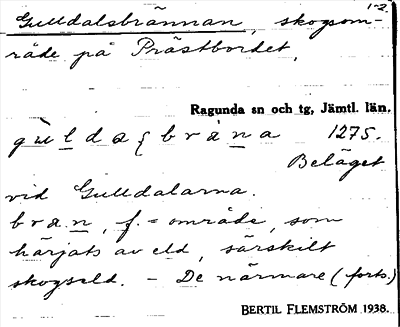 1-2.
Gulldalsbrännan, skogsom-
råde på Prästbordet,
Ragunda sn och tg, Jämtl. län.
guldasbrana 1275.
Beläget
vid Gulldalarna.
bræn, f. = område, som
härjats av eld, särskilt
skogseld. - De närmare (forts.)
BERTIL FLEMSTRÖM 1938.